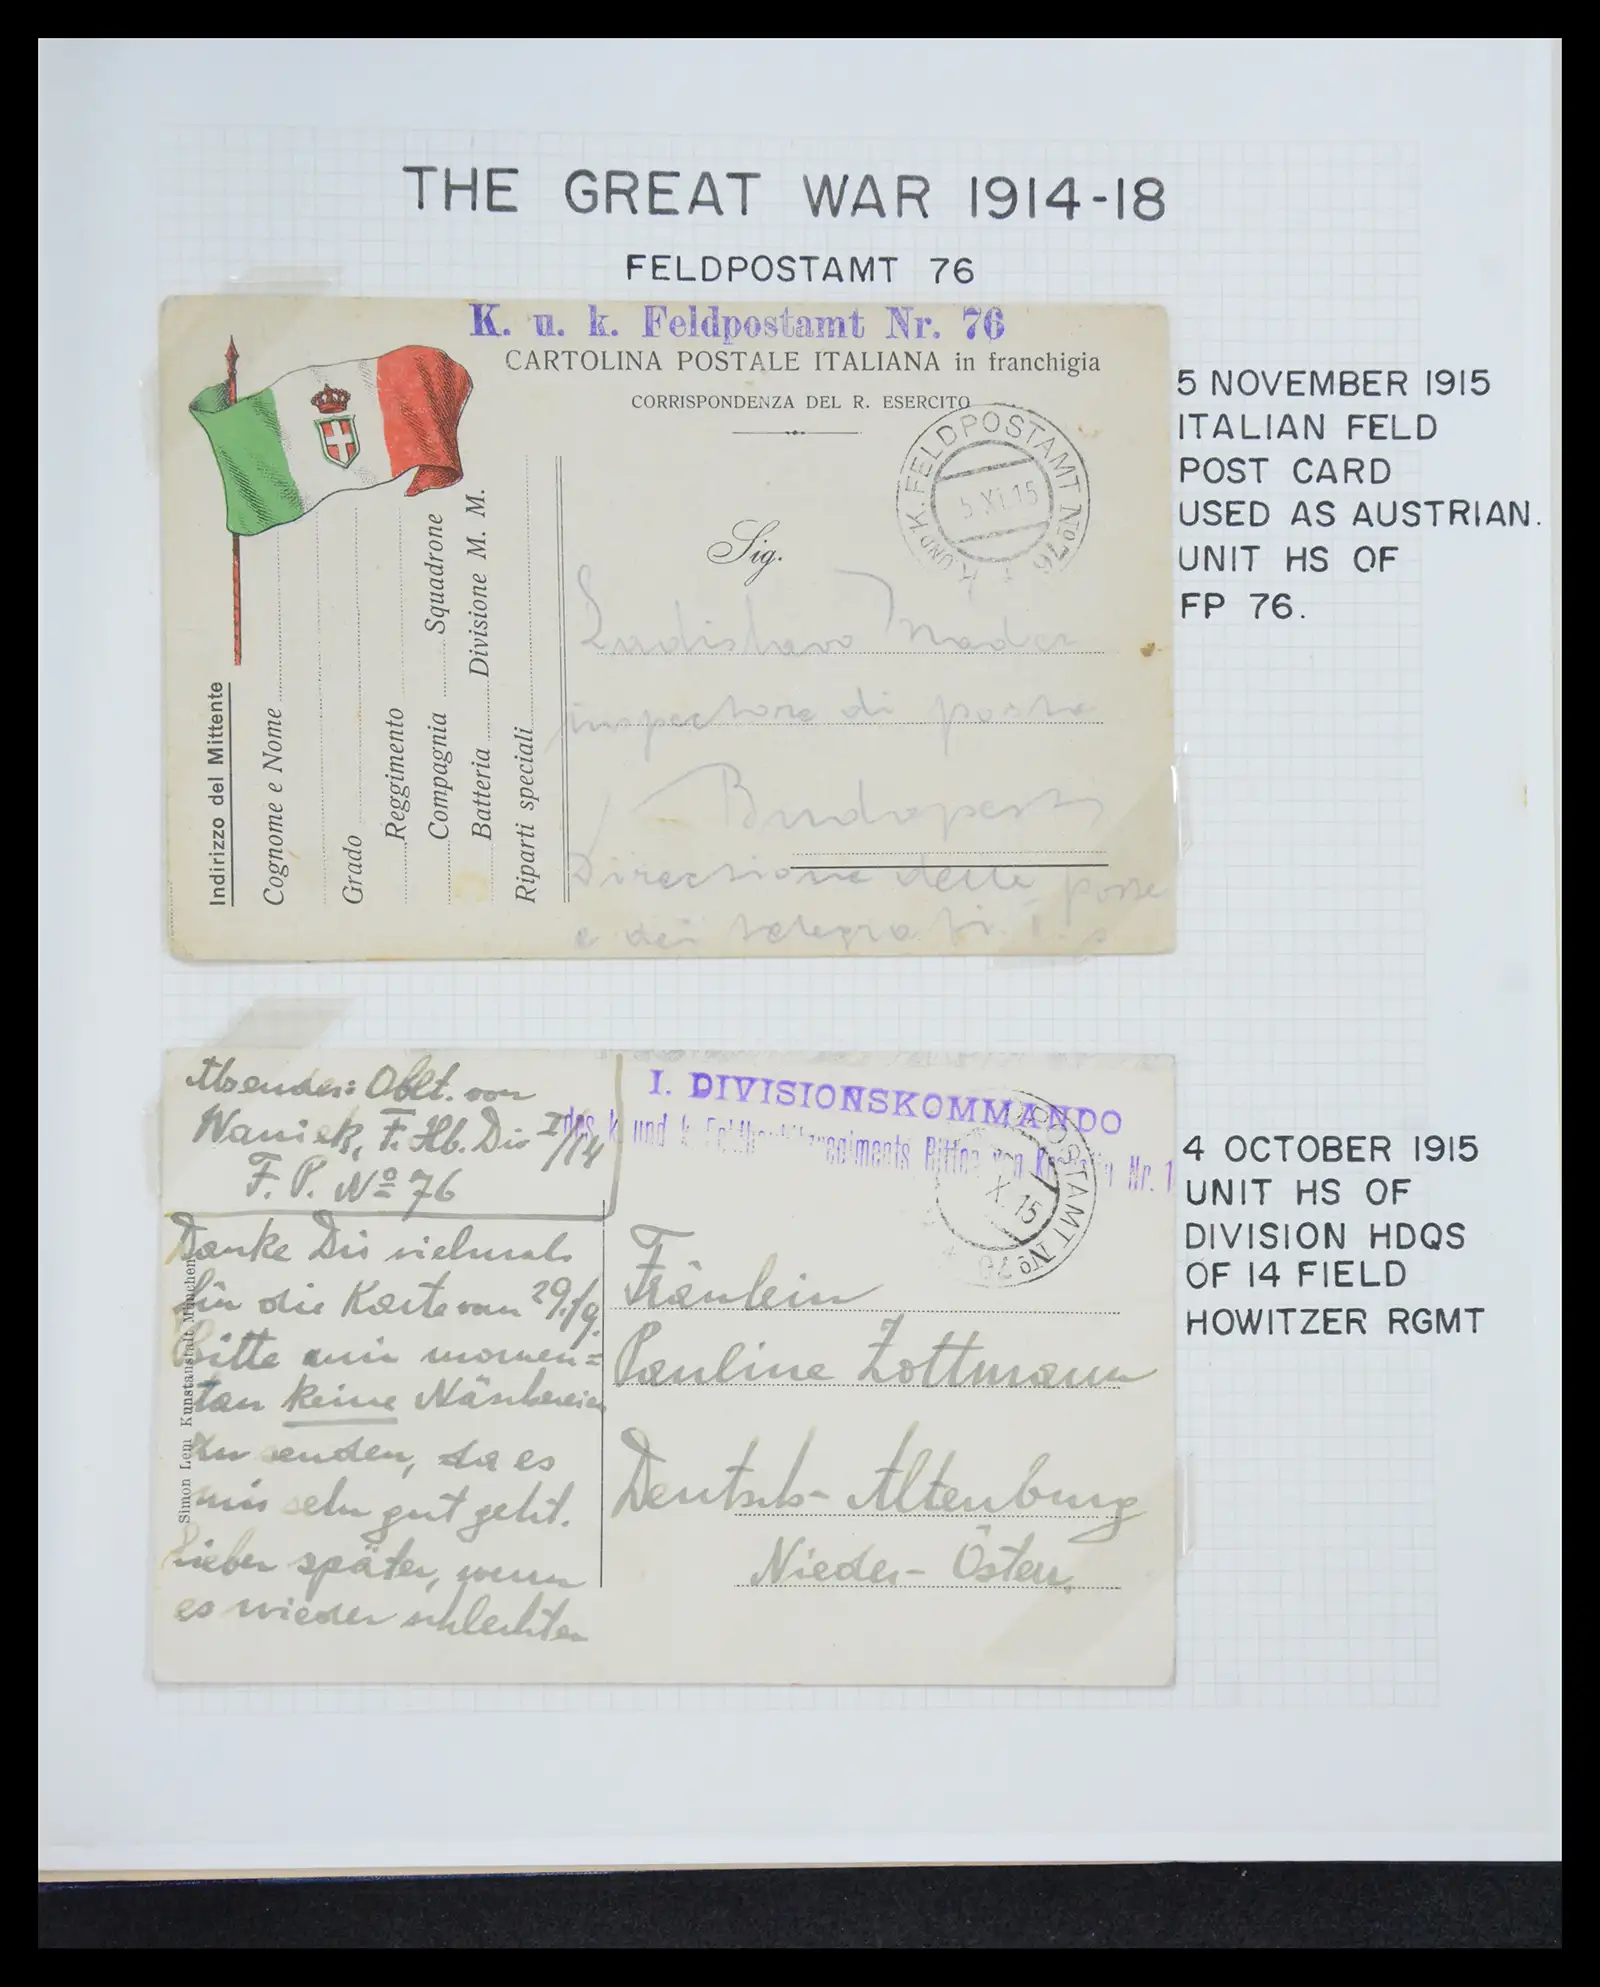 THE GREAT WAR 1914-18
FELDPOSTAMT 76
K. u. k. Feldpostamt Nr. 76
CARTOLINA POSTALE ITALIANA in franchigia
CORRISPONDENZA DEL R. ESERCITO
K. UND K. FELDPOSTAMT No 76
5 XI. 15
Sig.
Ladislavo Nador
inspectore di posta
Budapest
Direczione delle poste
e dei telegrafi.
Indirizzo del Mittente
Cognome e Nome
Grado
Reggimento
Compagnia Squadrone
Batteria Divisione M. M.
Riparti speciali
5 NOVEMBER 1915
ITALIAN FELD
POST CARD
USED AS AUSTRIAN.
UNIT HS OF
FP 76.
Absender: Oblt. von
Waniek, F. Hb. Div I/14
F. P. No 76
I. DIVISIONSKOMMANDO
des k. und k. Feldhaubitzregiments Ritter von Nr. 1
POSTAMT No 76
X. 15
Danke Dir vielmals
für die Karte vom 29./9.
Bitte mir momen=
tan keine Näschereien
zu senden, da es
mir sehr gut geht.
Lieber später, wenn
es wieder schlechter
Simon Lem Kunstanstalt München
Fräulein
Pauline Zottmann
Deutsch-Altenburg
Nieder-Österr.
4 OCTOBER 1915
UNIT HS OF
DIVISION HDQS
OF 14 FIELD
HOWITZER RGMT